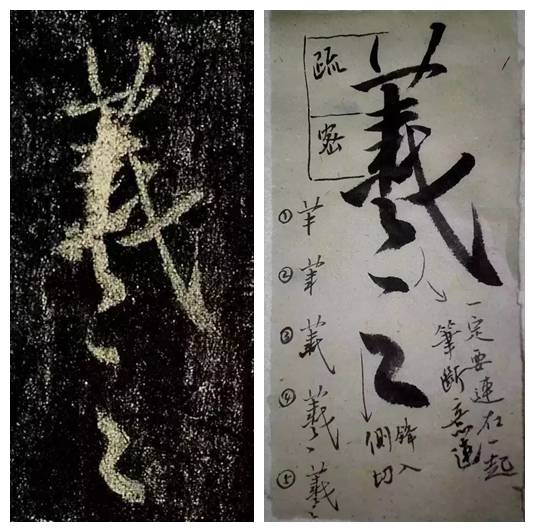 羲之
疏
密
羲之
①
②
③
④
⑤
側鋒入
切
一定要連在一起
筆斷意連